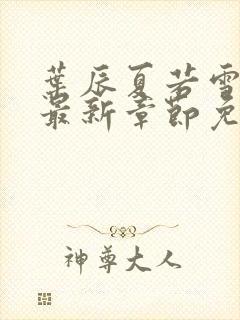 葉辰夏若雪
最新章節免
神尊大人